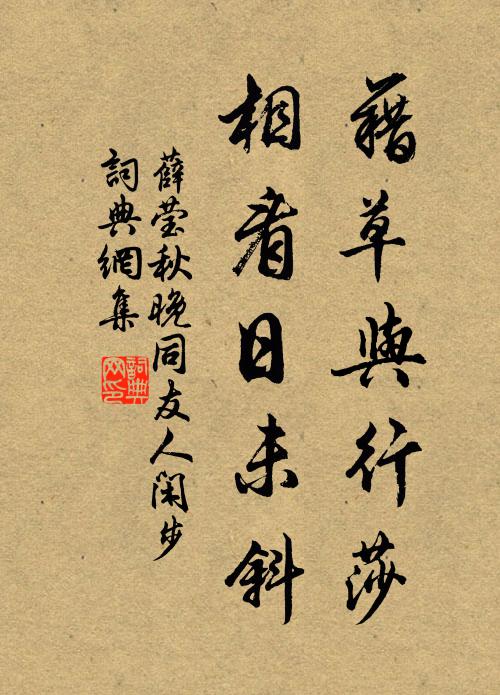 藉草與行莎
相看日未斜
薛莹秋晚同友人閑步
詞典網集
詞典网印